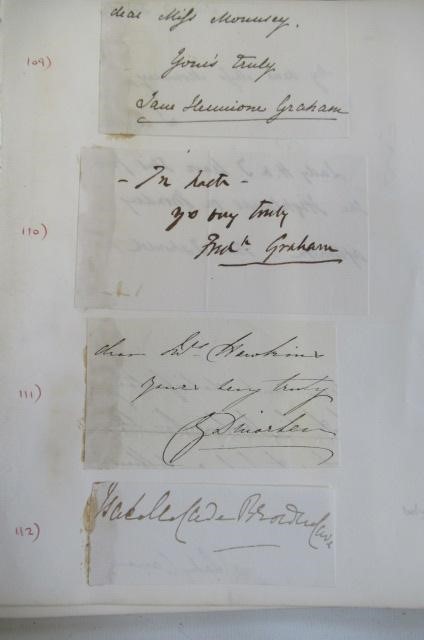 109)
dear Miss Mounsey.
Yours truly.
Jane Hermione Graham
110)
- In haste -
yrs very truly
Fredk Graham
111)
dear Mrs Hawkins
yours very truly
112)
Isabella Cave Browne Cave